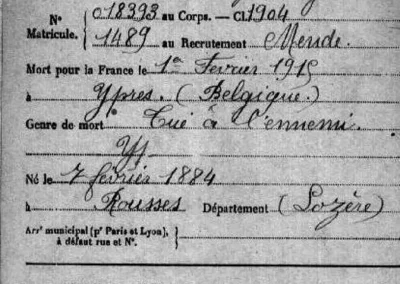 No 018393 au Corps. — Cl. 1904
Matricule. 1489 au Recrutement Mende.
Mort pour la France le 1er Fevrier 1915
à Ypres. (Belgique.)
Genre de mort Tué à l'ennemi.
Né le 7 février 1884
à Rousses Département (Lozère)
Arrt municipal (pr Paris et Lyon),
à défaut rue et No.